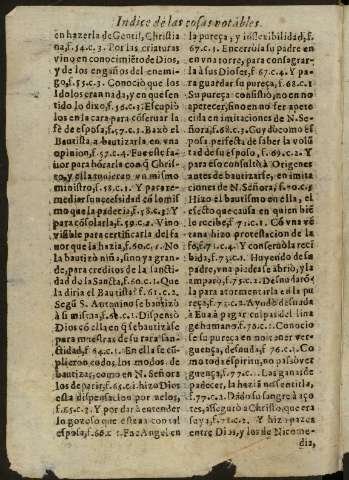 Indice de las cosas notables.
en hazerla de Gentil, Christia
na, f.54.c.3. Por las criaturas
vino en conocimiẽto de Dios,
y de los engaños del enemi-
go, f.55.c.3. Conociò que los
Idolos eran nada, y en que sen
tido lo dixo, f.56.c.3. Escupiò
los en la cara para cõseruar la
fè de esposa, f.57.c.1. Baxò el
Bautista, a bautizarla en vna
opinion, f.57.c.4. Fue esta
por hòrarla con q̃ Chris-
to, y ella tuuieron vn mismo
ministro, f.58.c.1. Y para re-
mediar su necessidad cõ lo mis
mo que la padecia, f.58.c.3. Y
para cõsolarla, f.59.c.2. Vino
visible para certificarla del fa-
uor que la hazia, f.60.c.1. No
la bautizò niña, sino ya gran-
de, para creditos de la sancti-
dad de la Sancta, f.60.c.1. Que
la diria el Bautista f.61.c.2.
Segũ S. Antonino se bautizò
à si misma, f.62.c.1. Dispensò
Dios cõ ella en q̃ se bautizasse
para muestras de su rara san-
ctidad, f.64.c.1. En ella se cũ-
plieron todos los modos de
bautizar, como en N. Señora
los de parir, f.65.c.1. hizo Dios
esta dispensacion por zelos,
f.65.c.2. Y por dar à entender
lo gozoso que estaua con tal
esposa, f.66.c.1. Fue Angel en
la pureça, y inflexibilidad, f.
67.c.1. Encerròla su padre en
en vna torre, para consagrar-
la à sus Dioses, f.67.c.4. Y pa-
ra guardar su pureça, f.68.c.1.
Su pureça consistiò, no en no
apetecer, sino en no ser apete
cida en imitaciones de N. Se-
ñora, f.68.c.3. Cuydò como es
posa perfecta de saber la volũ
tad de su esposo, f.69.c.2. Y
para eso consultò à Origenes
antes de bautizarse, en imita
ciones de N. Señora, f.70.c.3
Hizo el bautismo en ella, el
efecto que causa en quien biẽ
lo recibe, f.71.c.1. Cõ vna vè
rana hizo protestacion de la
fè, f.71.c.4. Y conseruòla reci
bida, f.72.c.1. Huyendo de su
padre, vna piedra se abriò, y la
amparò, f.75.c.2. Desnudarõ
la para atormentarla en la pu
reça, f.75.c.2. Ayudò desnuda
à Eua à pagar culpas del lina
ge humano. f.76.c.1. Conocio
se su pureça en no tener ver-
guença, desnuda, f.76.c.1. Co
mo toda espiritu, no pasò ver
guença, f.77.c.1. Las ganas de
padecer, la hazia no sentirla,
f.77.c.2. Dãdo su sangre à aço
tes, assegurò a Christo, que era
suya, f.77.c.2. Y hizo pazes
entre Dios, y los de Nicome-
dia,